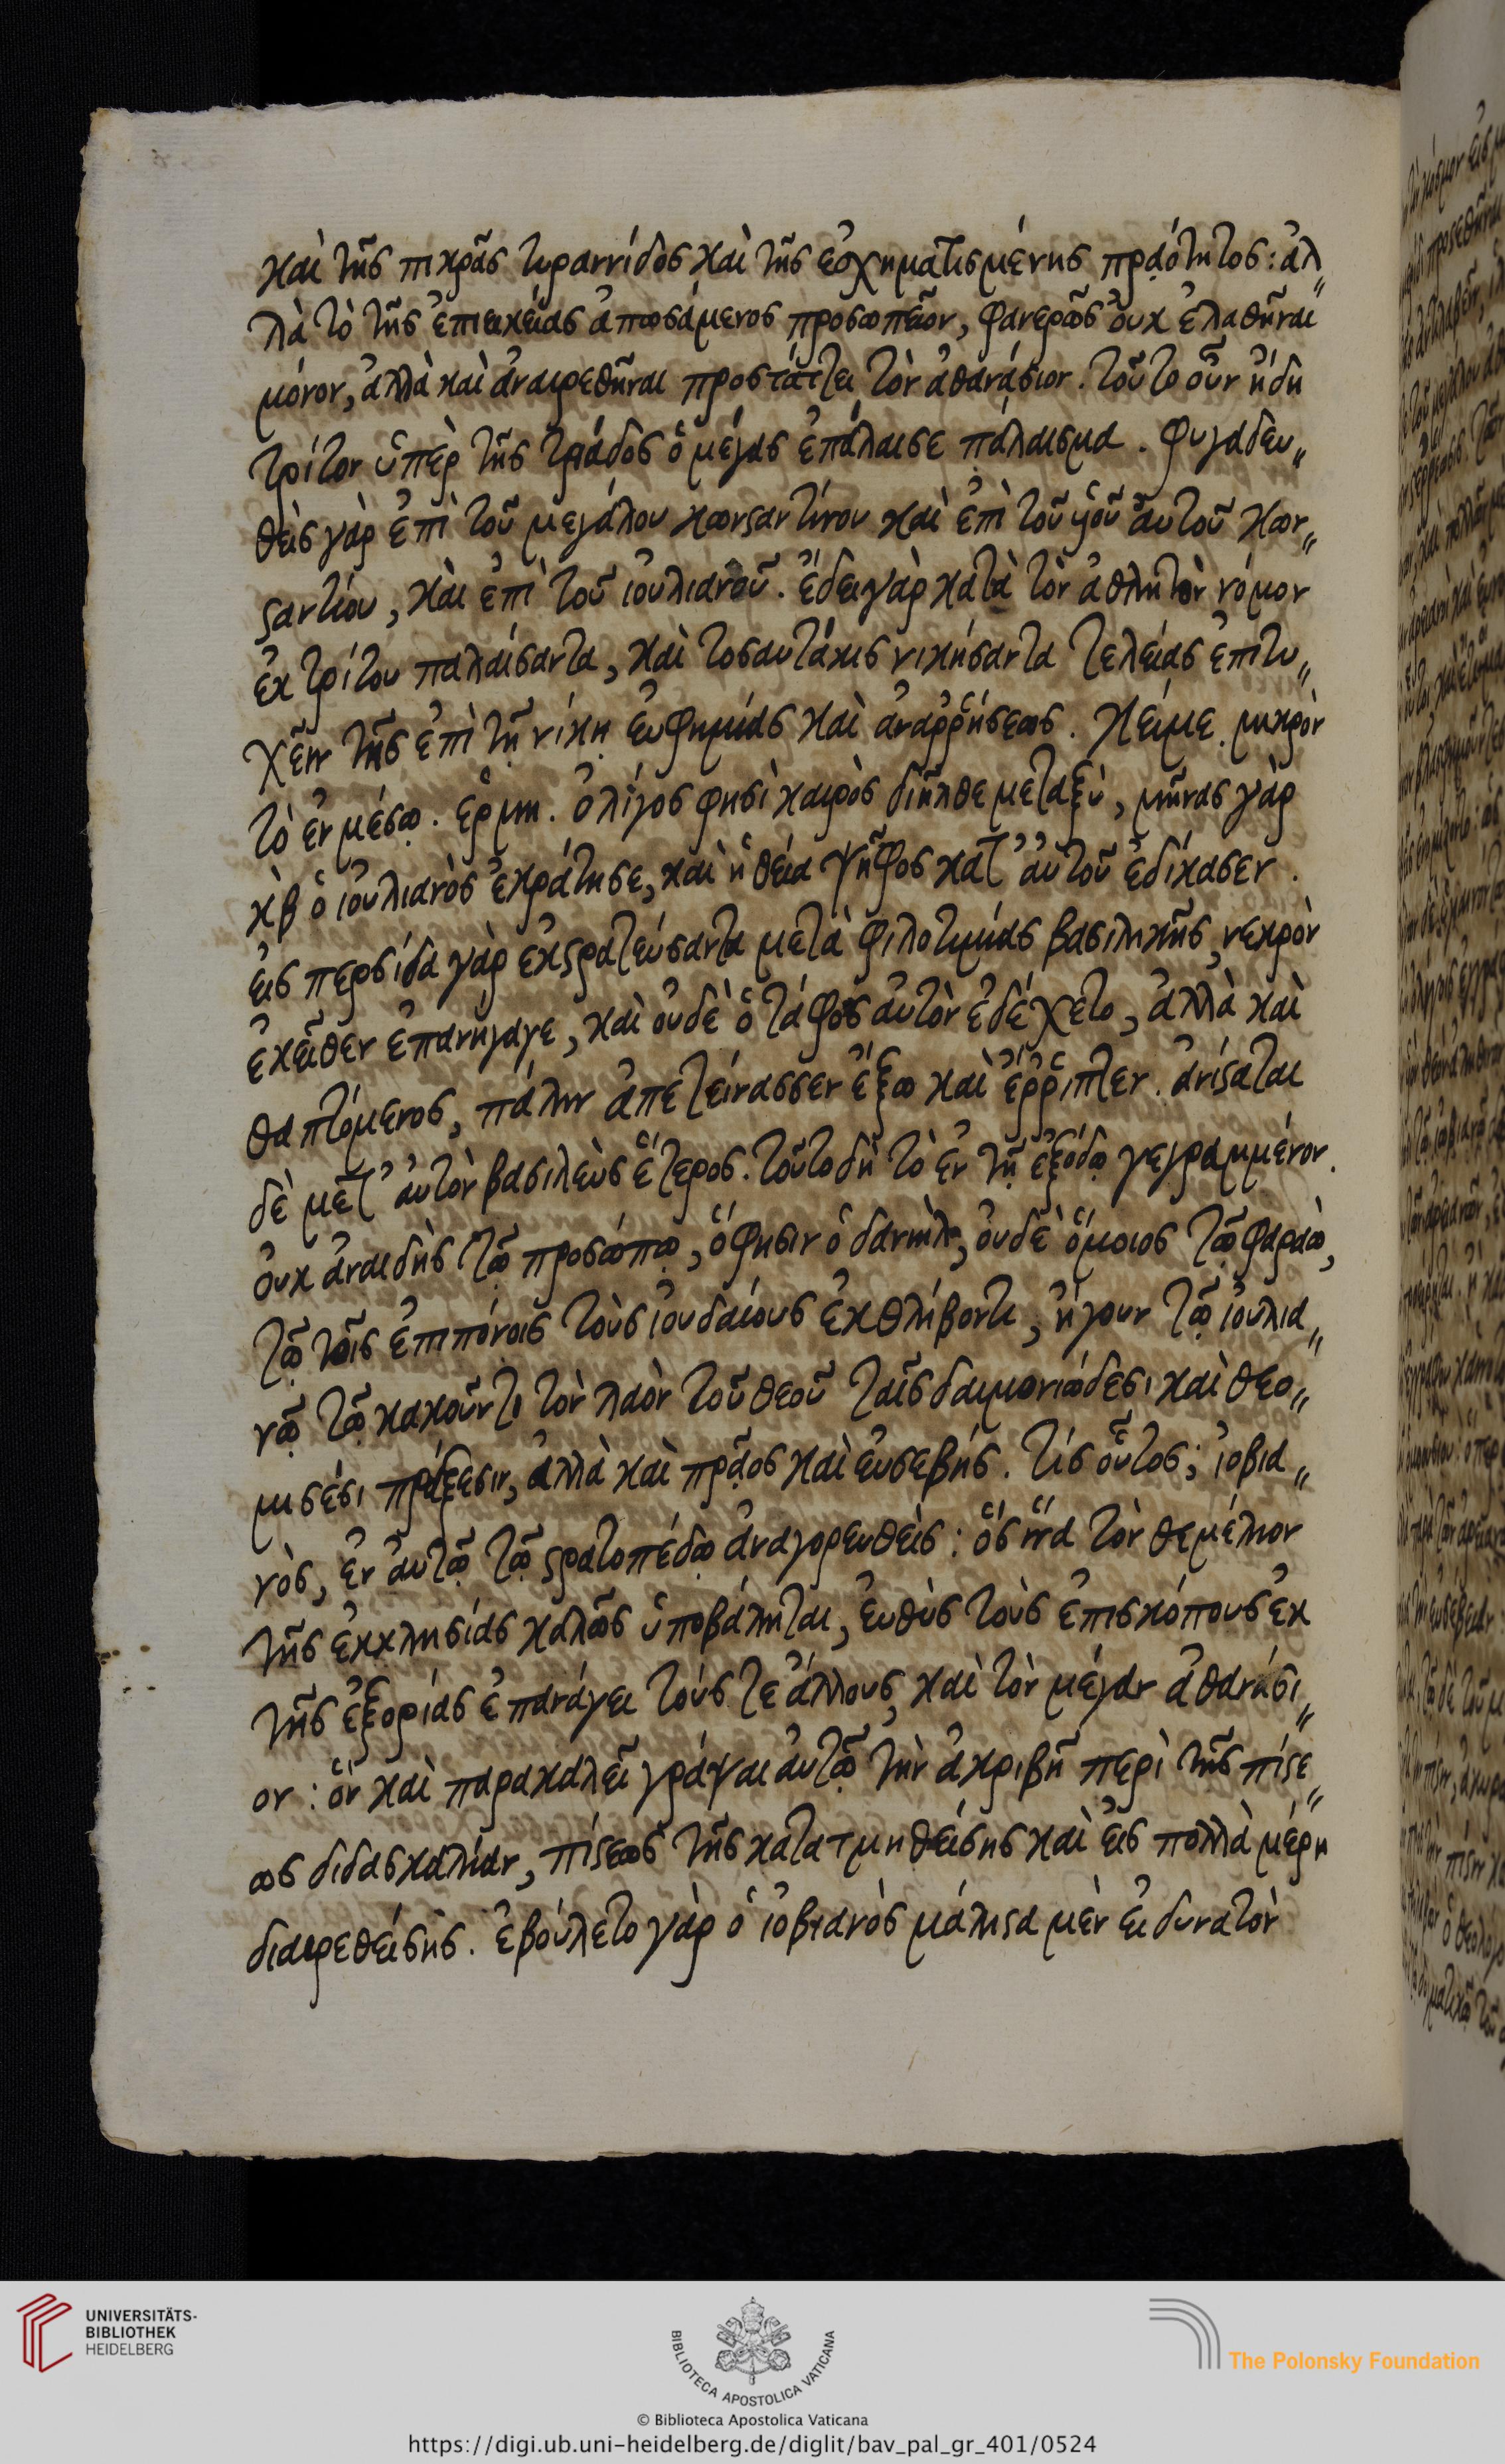 καὶ τῆς πικρᾶς τυραννίδος καὶ τῆς ἐσχηματισμένης πρᾳότητος: ἀλ„
λὰ τὸ τῆς ἐπιεικείας ἀπωσάμενος προσωπεῖον, φανερῶς οὐκ ἐλαθῆναι
μόνον, ἀλλὰ καὶ ἀναιρεθῆναι προστάττει τὸν ἀθανάσιον. τοῦτο οὖν ἤδη
τρίτον ὑπὲρ τῆς τριάδος ὁ μέγας ἐπάλαισε πάλαισμα. φυγαδευ„
θεὶς γὰρ ἐπὶ τοῦ μεγάλου κωνσαντίνου καὶ ἐπὶ τοῦ υἱοῦ αὐτοῦ κων„
σαντίου, καὶ ἐπὶ τοῦ ἰουλιανοῦ. ἔδει γὰρ κατὰ τὸν ἀθλητῶν νόμον
ἐκ τρίτου παλαίσαντα, καὶ τοσαυτάκις νικήσαντα τελείας ἐπιτυ„
χεῖν τῆς ἐπὶ τῇ νίκῃ εὐφημίας καὶ ἀναῤῥήσεως. κείμε. μικρὸν
τὸ ἐν μέσῳ. ἑρμη. ὀλίγος φησὶ καιρὸς διῆλθε μεταξὺ, μῆνας γὰρ
κβ ὁ ἰουλιανὸς ἐκράτησε, καὶ ἡ θεία ψῆφος κατ' αὐτοῦ ἐδίκασεν.
εἰς περσίδα γὰρ ἐκστρατεύσαντα μετὰ φιλοτιμίας βασιλικῆς, νεκρὸν
ἐκεῖθεν ἐπανήγαγε, καὶ οὐδὲ ὁ τάφος αὐτὸν ἐδέχετο, ἀλλὰ καὶ
θαπτόμενος, πάλιν ἀπετείνασσεν ἔξω καὶ ἔῤῥιπτεν. ἀνίσταται
δὲ μετ' αὐτὸν βασιλεὺς ἕτερος. τοῦτο δὴ τὸ ἐν τῇ ἐξόδῳ γεγραμμένον.
οὐκ ἀναιδὴς τῷ προσώπῳ, ὅ φησιν ὁ δανιὴλ, οὐδὲ ὅμοιος τῷ φαραὼ,
τῷ τοῖς ἐπιπόνοις τοὺς ἰουδαίους ἐκθλίβοντι, ἤγουν τῷ ἰουλια„
νῷ τῷ κακοῦντι τὸν λαὸν τοῦ θεοῦ ταῖς δαιμονιώδεσι καὶ θεο„
μισέσι πράξεσιν, ἀλλὰ καὶ πρᾷος καὶ εὐσεβής. τίς οὗτος; ἰοβια„
νὸς, ἐν αὐτῷ τῷ στρατοπέδῳ ἀναγορευθείς: ὃς ἵνα τὸν θεμέλιον
τῆς ἐκκλησίας καλῶς ὑποβάληται, εὐθὺς τοὺς ἐπισκόπους ἐκ
τῆς ἐξορίας ἐπανάγει τούς τε ἄλλους, καὶ τὸν μέγαν ἀθανάσι„
ον: ὃν καὶ παρακαλεῖ γράψαι αὐτῷ τὴν ἀκριβῆ περὶ τῆς πίστε„
ως διδασκαλίαν, πίστεως τῆς κατατμηθείσης καὶ εἰς πολλὰ μέρη
διαιρεθείσης. ἐβούλετο γὰρ ὁ ἰοβιανὸς μάλιστα μὲν εἰ δυνατὸν
UNIVERSITÄTS-
BIBLIOTHEK
HEIDELBERG
BIBLIOTECA APOSTOLICA VATICANA
The Polonsky Foundation
© Biblioteca Apostolica Vaticana
https://digi.ub.uni-heidelberg.de/diglit/bav_pal_gr_401/0524